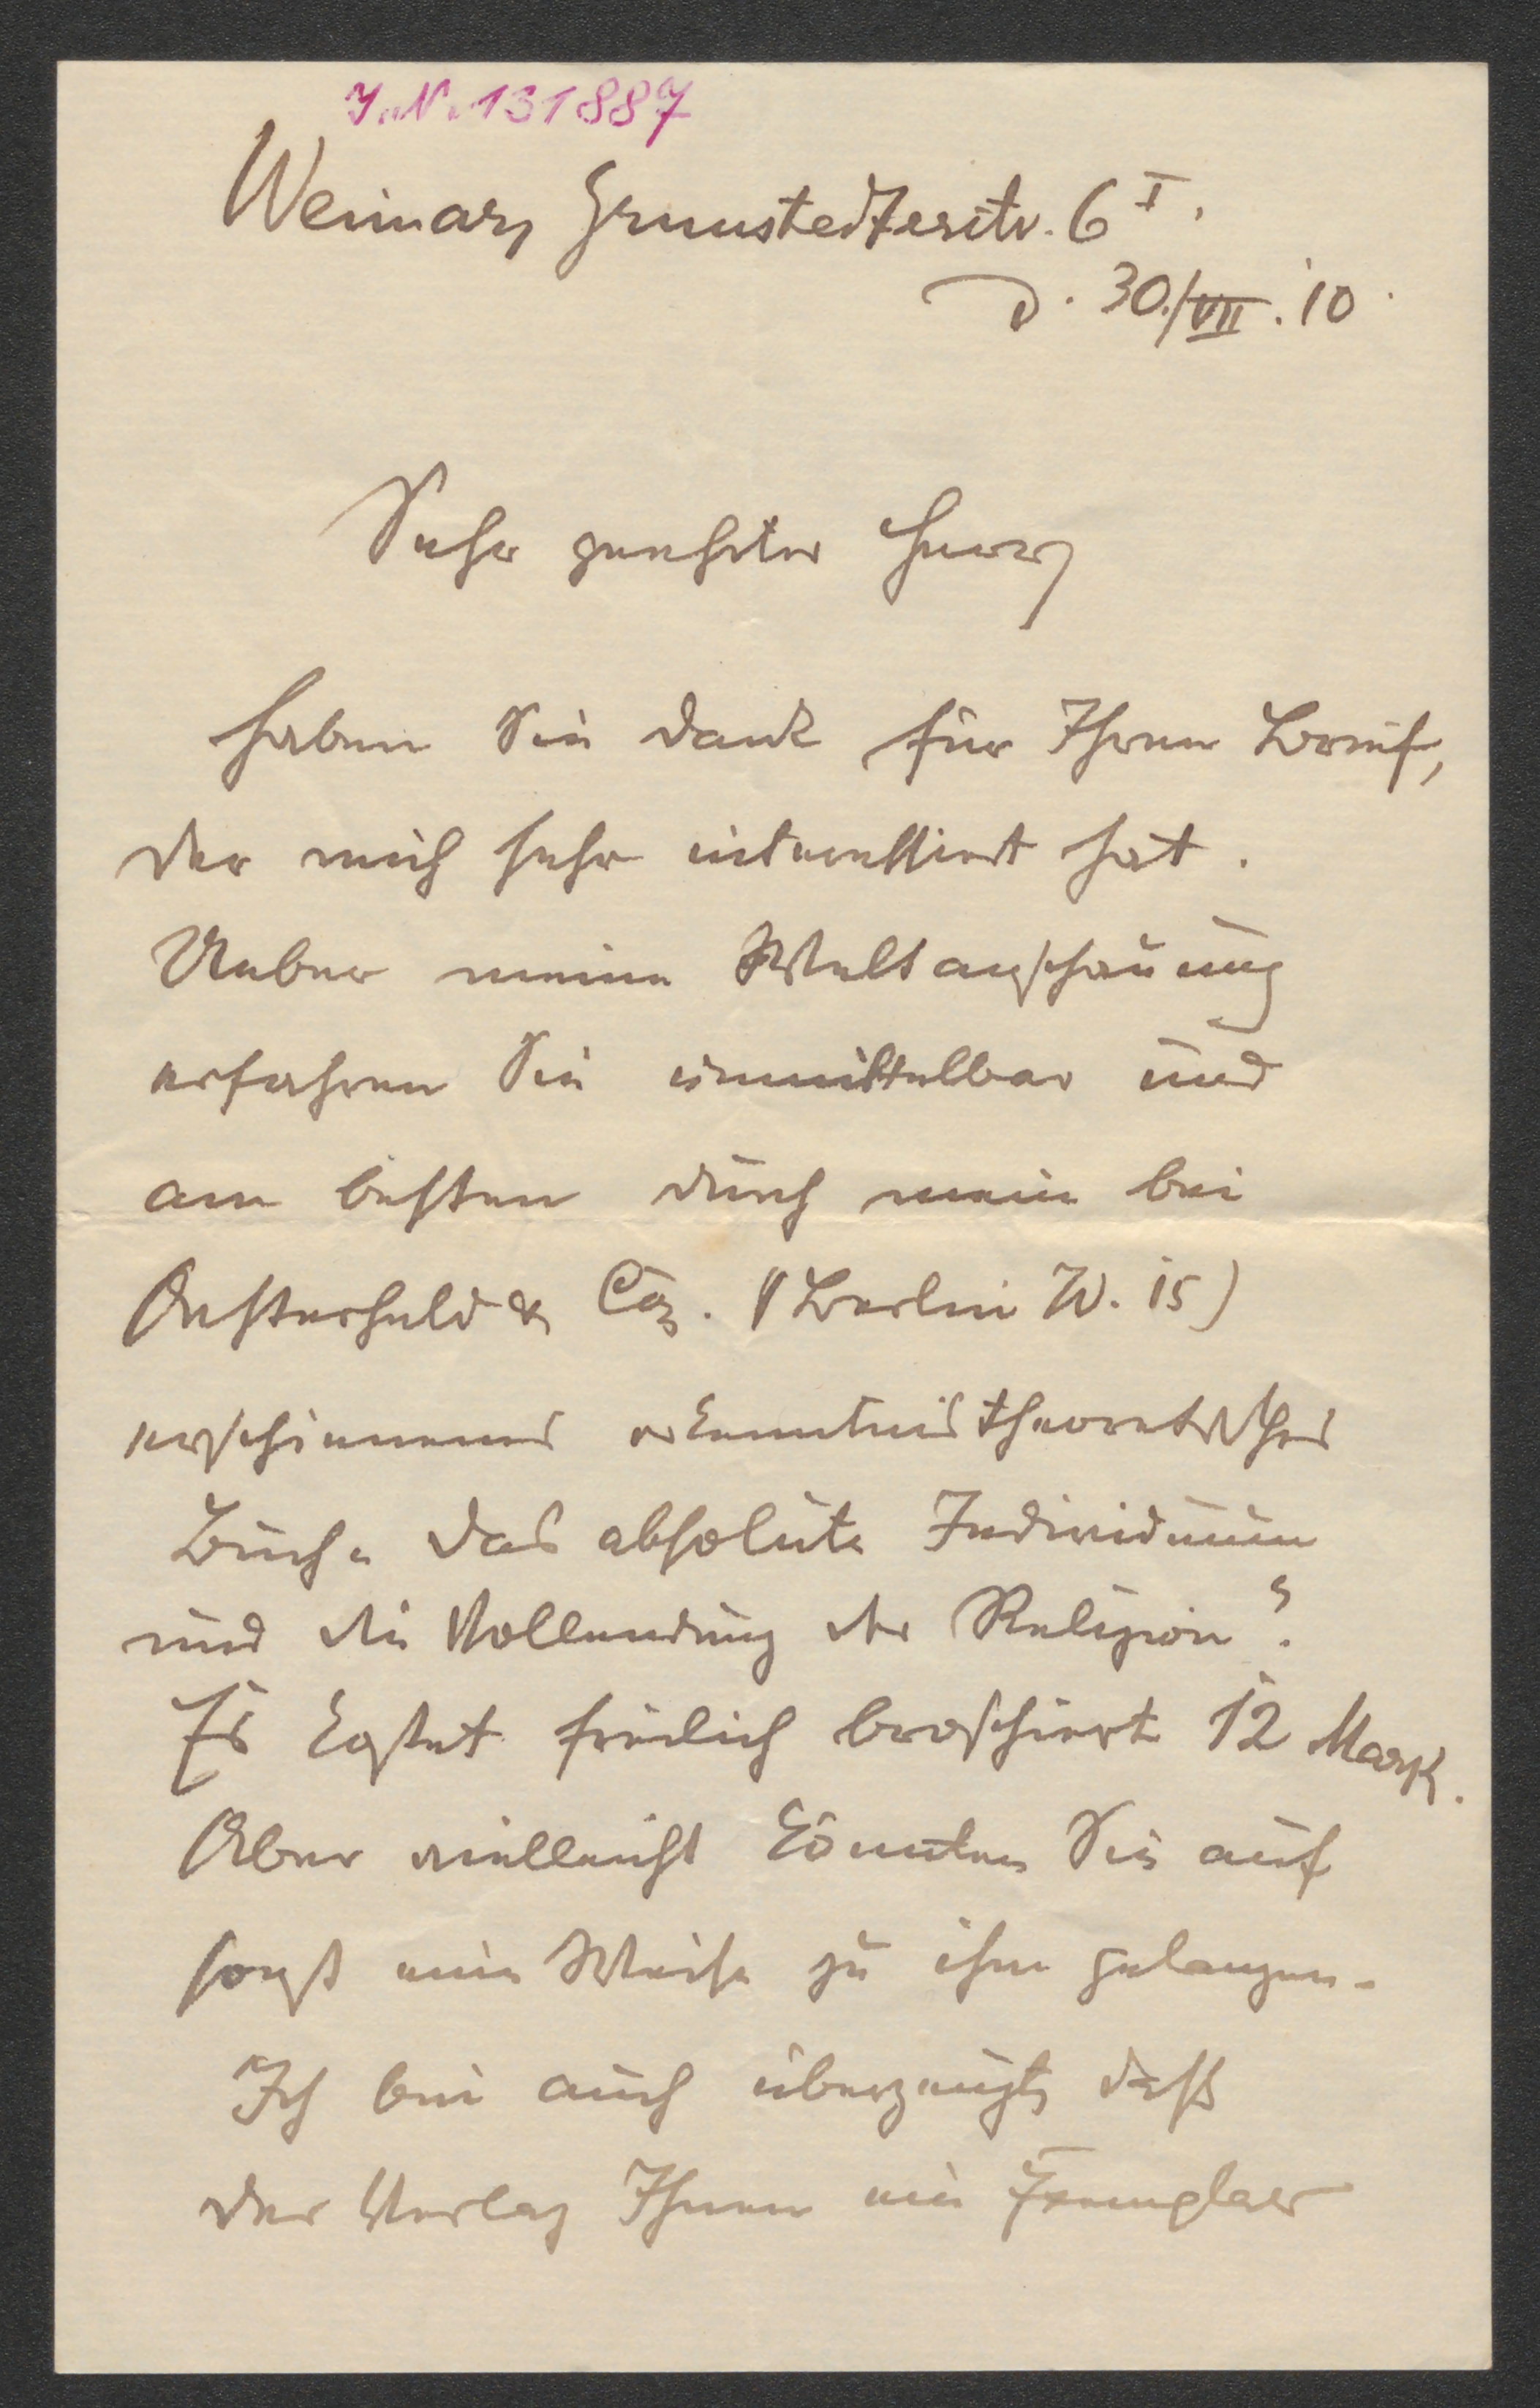 I.N. 131887
Weimar, Grunstedterstr. 6 I.
d. 30./VII. 10.
Sehr geehrter Herr,
haben Sie Dank für Ihren Brief,
der mich sehr interessiert hat.
Ueber meine Weltanschauung
erfahren Sie unmittelbar und
am besten durch mein bei
Oesterheld & Co. (Berlin W. 15)
erschienenes erkenntnistheoretisches
Buch „Das absolute Individuum
und die Vollendung der Religion“.
Es kostet freilich broschiert 12 Mark.
Aber vielleicht könnten Sie auf
sonst eine Weise zu ihm gelangen.
Ich bin auch überzeugt, daß
der Verlag Ihnen ein Exemplar